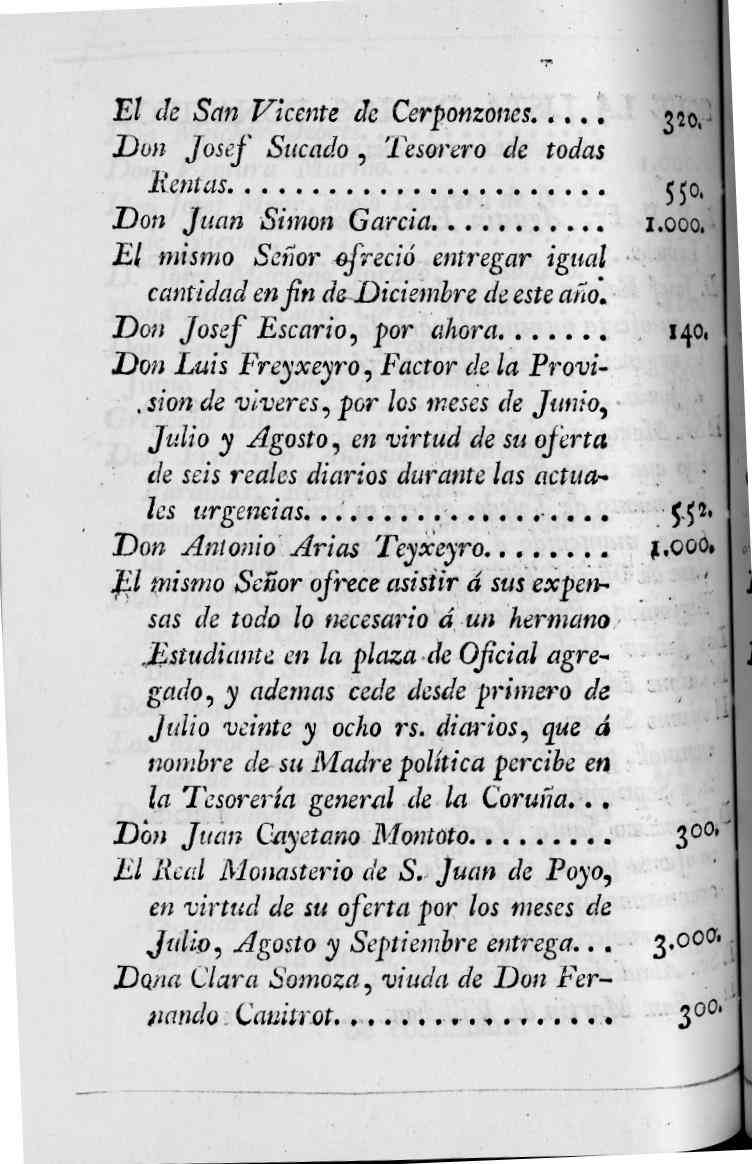 El de San Vicente de Cerponzones. . . . . 320.
Don Josef Sucado , Tesorero de todas
Rentas. . . . . . . . . . . . . . . . . . . . . . . 550.
Don Juan Simon Garcia. . . . . . . . . . . 1.000.
El mismo Señor ofreció entregar igual
cantidad en fin de Diciembre de este año.
Don Josef Escario, por ahora. . . . . . . 140.
Don Luis Freyxeyro, Factor de la Provi-
sion de viveres, por los meses de Junio,
Julio y Agosto, en virtud de su oferta
de seis reales diarios durante las actua-
les urgencias. . . . . . . . . . . . . . . . . . . 552.
Don Antonio Arias Teyxeyro. . . . . . . . 1.000.
El mismo Señor ofrece asistir á sus expen-
sas de todo lo necesario á un hermano
Estudiante en la plaza de Oficial agre-
gado, y ademas cede desde primero de
Julio veinte y ocho rs. diarios, que á
nombre de su Madre política percibe en
la Tesorería general de la Coruña. . .
Don Juan Cayetano Montoto. . . . . . . . . 300.
El Real Monasterio de S. Juan de Poyo,
en virtud de su oferta por los meses de
Julio, Agosto y Septiembre entrega. . . 3.000.
Dona Clara Somoza, viuda de Don Fer-
nando Canitrot. . . . . . . . . . . . . . . . . 300.